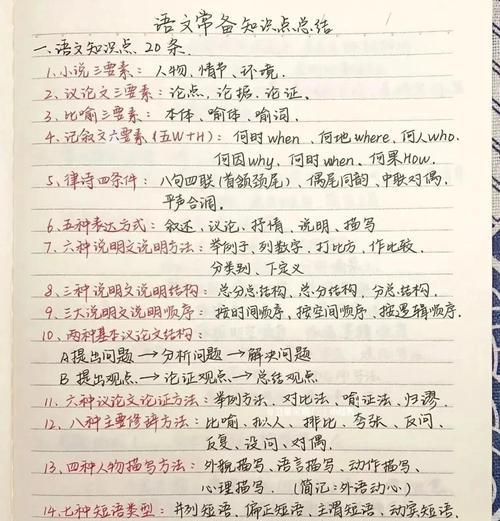 语文常备知识点总结
一、语文知识点20条.
1、小说三要素：人物、情节、环境.
2、议论文三要素：论点、论据、论证.
3、比喻三要素：本体、喻体、喻词.
4、记叙文六要素（五W+H）：何时when、何地where、何人who.
何因why、何时when、何果How.
5、律诗四条件：八句四联(首颔颈尾)、偶尾同韵、中联对偶，
平声合调.
6、五种表达方式：叙述、议论、抒情、说明、描写
7、六种说明文说明方法：举例子、列数字、打比方、作比较、
分类别、下定义
8、三种说明文说明结构：总分总结构、总分结构、分总结构.
9、三大说明文说明顺序：按时间顺序、按空间顺序、按逻辑顺序.
10、两种基本议论文结构：
A 提出问题→分析问题→解决问题
B 提出观点→论证观点→总结观点
11、六种议论文论证方法：举例方法、对比法、喻证法、归谬
12、八种主要修辞方法：比喻、拟人、排比、夸张、反问、
反复、设问、对偶.
13、四种人物描写方法：外貌描写、语言描写、动作描写、
心理描写.（简记：外语动心）
14、七种短语类型：并列短语、偏正短语、主谓短语、动宾短语、